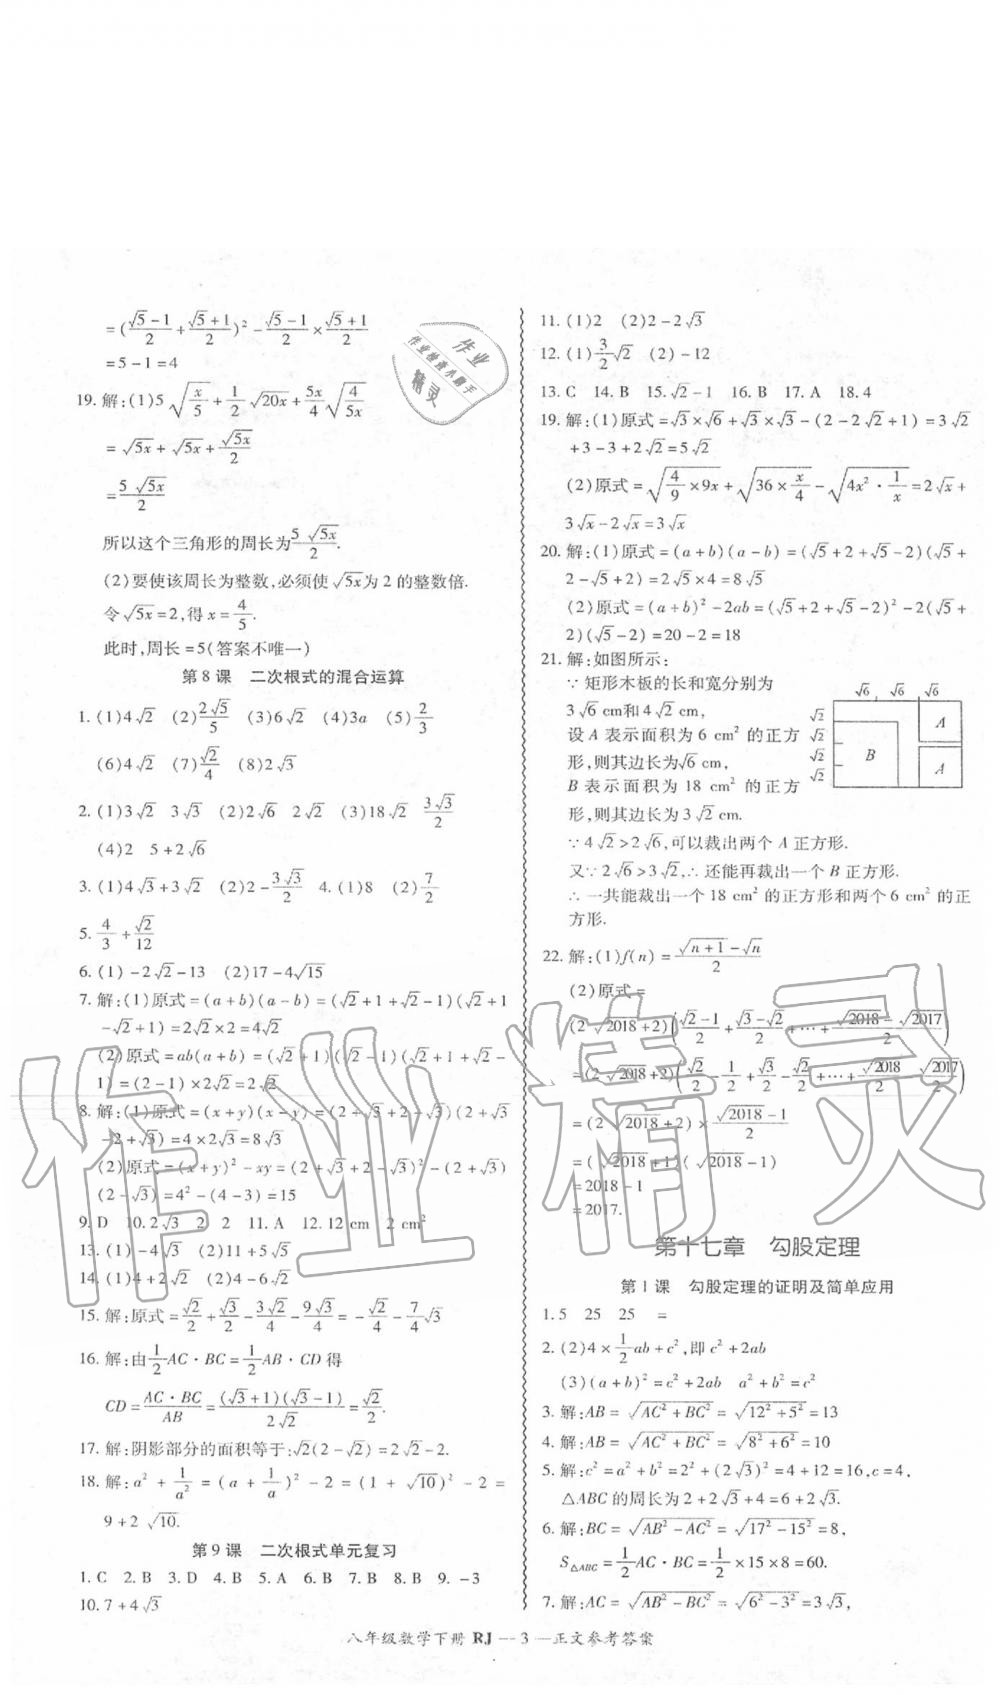 =(\frac{√5-1}{2}+\frac{√5+1}{2})²-\frac{√5-1}{2}×\frac{√5+1}{2}
=5-1=4
19. 解:(1)5√(\frac{x}{5})+\frac{1}{2}√20x+\frac{5x}{4}√(\frac{4}{5x})
=√5x+√5x+\frac{√5x}{2}
=\frac{5√5x}{2}
所以这个三角形的周长为\frac{5√5x}{2}.
(2)要使该周长为整数,必须使√5x为2的整数倍.
令√5x=2,得x=\frac{4}{5}.
此时,周长=5(答案不唯一)
第8课 二次根式的混合运算
1. (1)4√2 (2)\frac{2√5}{5} (3)6√2 (4)3a (5)\frac{2}{3}
(6)4√2 (7)\frac{√2}{4} (8)2√3
2. (1)3√2 3√3 (2)2√6 2√2 (3)18√2 \frac{3√3}{2}
(4)2 5+2√6
3. (1)4√3+3√2 (2)2-\frac{3√3}{2} 4. (1)8 (2)\frac{7}{2}
5. \frac{4}{3}+\frac{√2}{12}
6. (1)-2√2-13 (2)17-4√15
7. 解:(1)原式=(a+b)(a-b)=(√2+1+√2-1)(√2+1
-√2+1)=2√2×2=4√2
(2)原式=ab(a+b)=(√2+1)(√2-1)(√2+1+√2-
1)=(2-1)×2√2=2√2
8. 解:(1)原式=(x+y)(x-y)=(2+√3+2-√3)(2+√3
-2+√3)=4×2√3=8√3
(2)原式=(x+y)²-xy=(2+√3+2-√3)²-(2+√3)
(2-√3)=4²-(4-3)=15
9. D 10. 2√3 2 2 11. A 12. 12 cm 2 cm²
13. (1)-4√3 (2)11+5√5
14. (1)4+2√2 (2)4-6√2
15. 解:原式=\frac{√2}{2}+\frac{√3}{2}-\frac{3√2}{4}-\frac{9√3}{4}=-\frac{√2}{4}-\frac{7}{4}√3
16. 解:由\frac{1}{2}AC·BC=\frac{1}{2}AB·CD得
CD=\frac{AC·BC}{AB}=\frac{(√3+1)(√3-1)}{2√2}=\frac{√2}{2}.
17. 解:阴影部分的面积等于:√2(2-√2)=2√2-2.
18. 解:a²+\frac{1}{a²}=(a+\frac{1}{a})²-2=(1+√10)²-2=
9+2√10.
第9课 二次根式单元复习
1. C 2. B 3. D 4. B 5. A 6. B 7. B 8. B 9. -3
10. 7+4√3
11. (1)2 (2)2-2√3
12. (1)\frac{3}{2}√2 (2)-12
13. C 14. B 15. √2-1 16. B 17. A 18. 4
19. 解:(1)原式=√3×√6+√3×√3-(2-2√2+1)=3√2
+3-3+2√2=5√2
(2)原式=√(\frac{4}{9}×9x)+√(36×\frac{x}{4})-√(4x²·\frac{1}{x})=2√x+
3√x-2√x=3√x
20. 解:(1)原式=(a+b)(a-b)=(√5+2+√5-2)(√5+
2-√5+2)=2√5×4=8√5
(2)原式=(a+b)²-2ab=(√5+2+√5-2)²-2(√5+
2)(√5-2)=20-2=18
21. 解:如图所示:
∵矩形木板的长和宽分别为
3√6 cm和4√2 cm,
设A表示面积为6 cm²的正方
形,则其边长为√6 cm,
B表示面积为18 cm²的正方
形,则其边长为3√2 cm.
√6 √6 √6
√2
√2
√2
√2
A
B
A
∵4√2>2√6,可以裁出两个A正方形.
又∵2√6>3√2,∴还能再裁出一个B正方形.
∴一共能裁出一个18 cm²的正方形和两个6 cm²的正
方形.
22. 解:(1)f(n)=\frac{√n+1-√n}{2}
(2)原式=
(2√2018+2)(\frac{√2-1}{2}+\frac{√3-√2}{2}+…+\frac{√2018-√2017}{2})
=(2√2018+2)(\frac{√2}{2}-\frac{1}{2}+\frac{√3}{2}-\frac{√2}{2}+…+\frac{√2018}{2}-\frac{√2017}{2})
=(2√2018+2)×\frac{√2018-1}{2}
=(√2018+1)(√2018-1)
=2018-1
=2017.
第十七章 勾股定理
第1课 勾股定理的证明及简单应用
1. 5 25 25 =
2. (2)4×\frac{1}{2}ab+c²,即c²+2ab
(3)(a+b)²=c²+2ab a²+b²=c²
3. 解:AB=√(AC²+BC²)=√(12²+5²)=13
4. 解:AB=√(AC²+BC²)=√(8²+6²)=10
5. 解:c²=a²+b²=2²+(2√3)²=4+12=16,c=4,
△ABC的周长为2+2√3+4=6+2√3.
6. 解:BC=√(AB²-AC²)=√(17²-15²)=8,
S△ABC=\frac{1}{2}AC·BC=\frac{1}{2}×15×8=60.
7. 解:AC=√(AB²-BC²)=√(6²-3²)=3√3,
八年级数学下册 RJ — 3 — 正文参考答案
作业精灵
作业
作业检查小助手
精灵